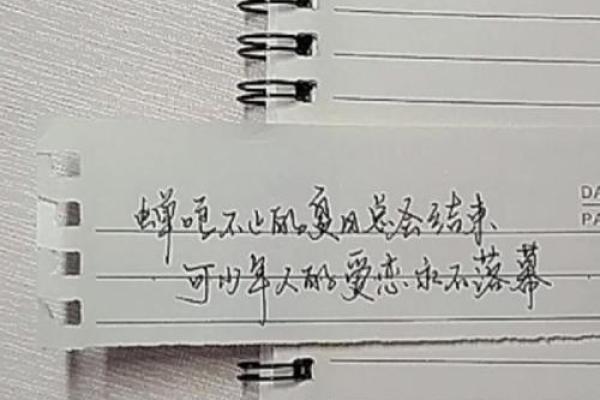 蝉喧不止的夏日总会结束
可少年人的爱恋永不落幕
DA
PA